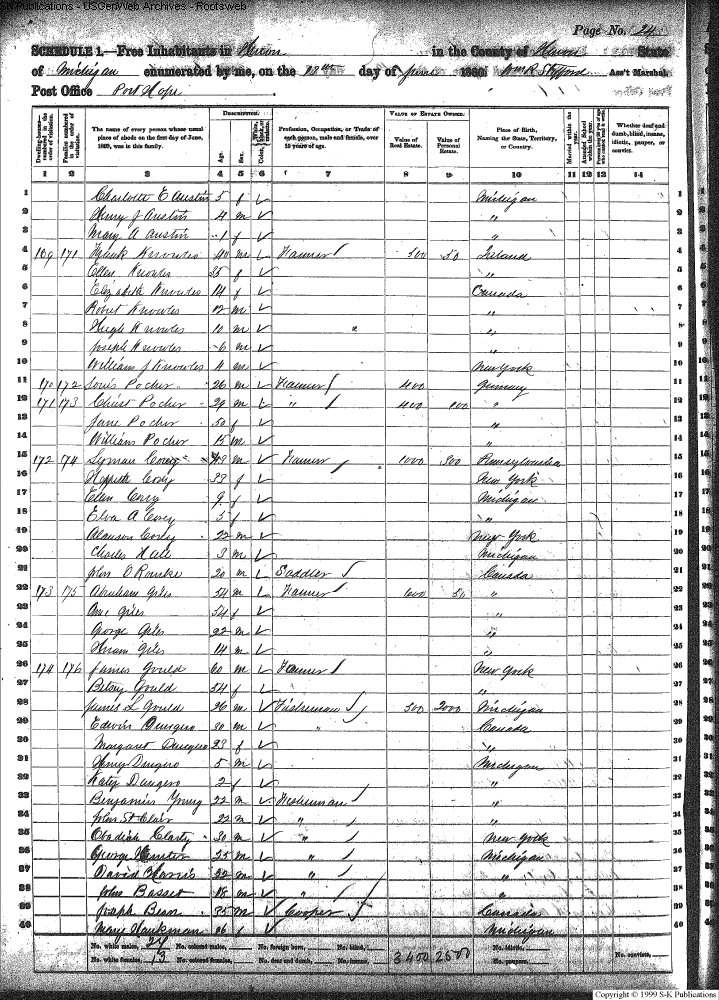 S-K Publications - USGenWeb Archives - Rootsweb
Page No. 24
SCHEDULE 1.—Free Inhabitants in Huron in the County of Huron State
of Michigan enumerated by me, on the 13th day of June 1860. Wm R Stafford Ass't Marshal.
Post Office Port Hope
Dwelling-houses—numbered in the order of visitation.
Families numbered in the order of visitation.
The name of every person whose usual place of abode on the first day of June, 1860, was in this family.
DESCRIPTION.
Age.
Sex.
Color,
Profession, Occupation, or Trade of each person, male and female, over 15 years of age.
VALUE OF ESTATE OWNED.
Value of Real Estate.
Value of Personal Estate.
Place of Birth, Naming the State, Territory, or Country.
Married within the year.
Attended School within the year.
Whether deaf and dumb, blind, insane, idiotic, pauper, or convict.
1 2 3 4 5 6 7 8 9 10 11 12 13 14
1 Charlotte E Austin 5 f Michigan 1
2 Henry J Austin 4 m " 2
3 Mary A Austin 1 f " 3
4 169 171 Knowles 40 m Farmer 500 50 Ireland 4
5 Ellen Knowles 35 f " 5
6 Elizabeth Knowles 14 f Canada 6
7 Robert Knowles 12 m " 7
8 Hugh Knowles 10 m " " 8
9 Joseph Knowles 6 m " 9
10 William J Knowles 4 m New York 10
11 170 172 Louis Pocher 26 m Farmer 400 Germany 11
12 171 173 Christ Pocher 29 m " 400 100 " 12
13 Jane Pocher 50 f " 13
14 William Pocher 15 m " 14
15 172 174 Lyman Corey 43 m Farmer 1000 300 Pennsylvania 15
16 Corey 33 f New York 16
17 Ellen Corey 9 f Michigan 17
18 Elva A Corey 5 f " 18
19 Alanson Corey 22 m New York 19
20 Charles Hall 3 m Michigan 20
21 John O Rourke 20 m Saddler Canada 21
22 173 175 Abraham Giles 54 m Farmer 600 50 " 22
23 Giles 54 f " 23
24 George Giles 22 m " 24
25 Hiram Giles 14 m " 25
26 174 176 James Gould 60 m Farmer New York 26
27 Betsey Gould 54 f " 27
28 James L Gould 26 m Fisherman 500 2000 Michigan 28
29 Edwin 30 m " Canada 29
30 Margaret 23 f " 30
31 Henry 5 m Michigan 31
32 Katy 2 f " 32
33 Benjamin Young 22 m Fisherman " 33
34 John St Clair 22 m " " 34
35 Obadiah 30 m " New York 35
36 George Hunter 25 m " Michigan 36
37 David Harris 22 m " " 37
38 John Basset 18 m " " 38
39 Joseph Bean 35 m Cooper Canada 39
40 Mary 16 f Michigan 40
No. white males, 27 No. colored males, No. foreign born, No. blind, 3400 2500 No. idiotic, No. convicts,
No. white females, 13 No. colored females, No. deaf and dumb, No. insane, No. paupers,
Copyright © 1999 S-K Publications